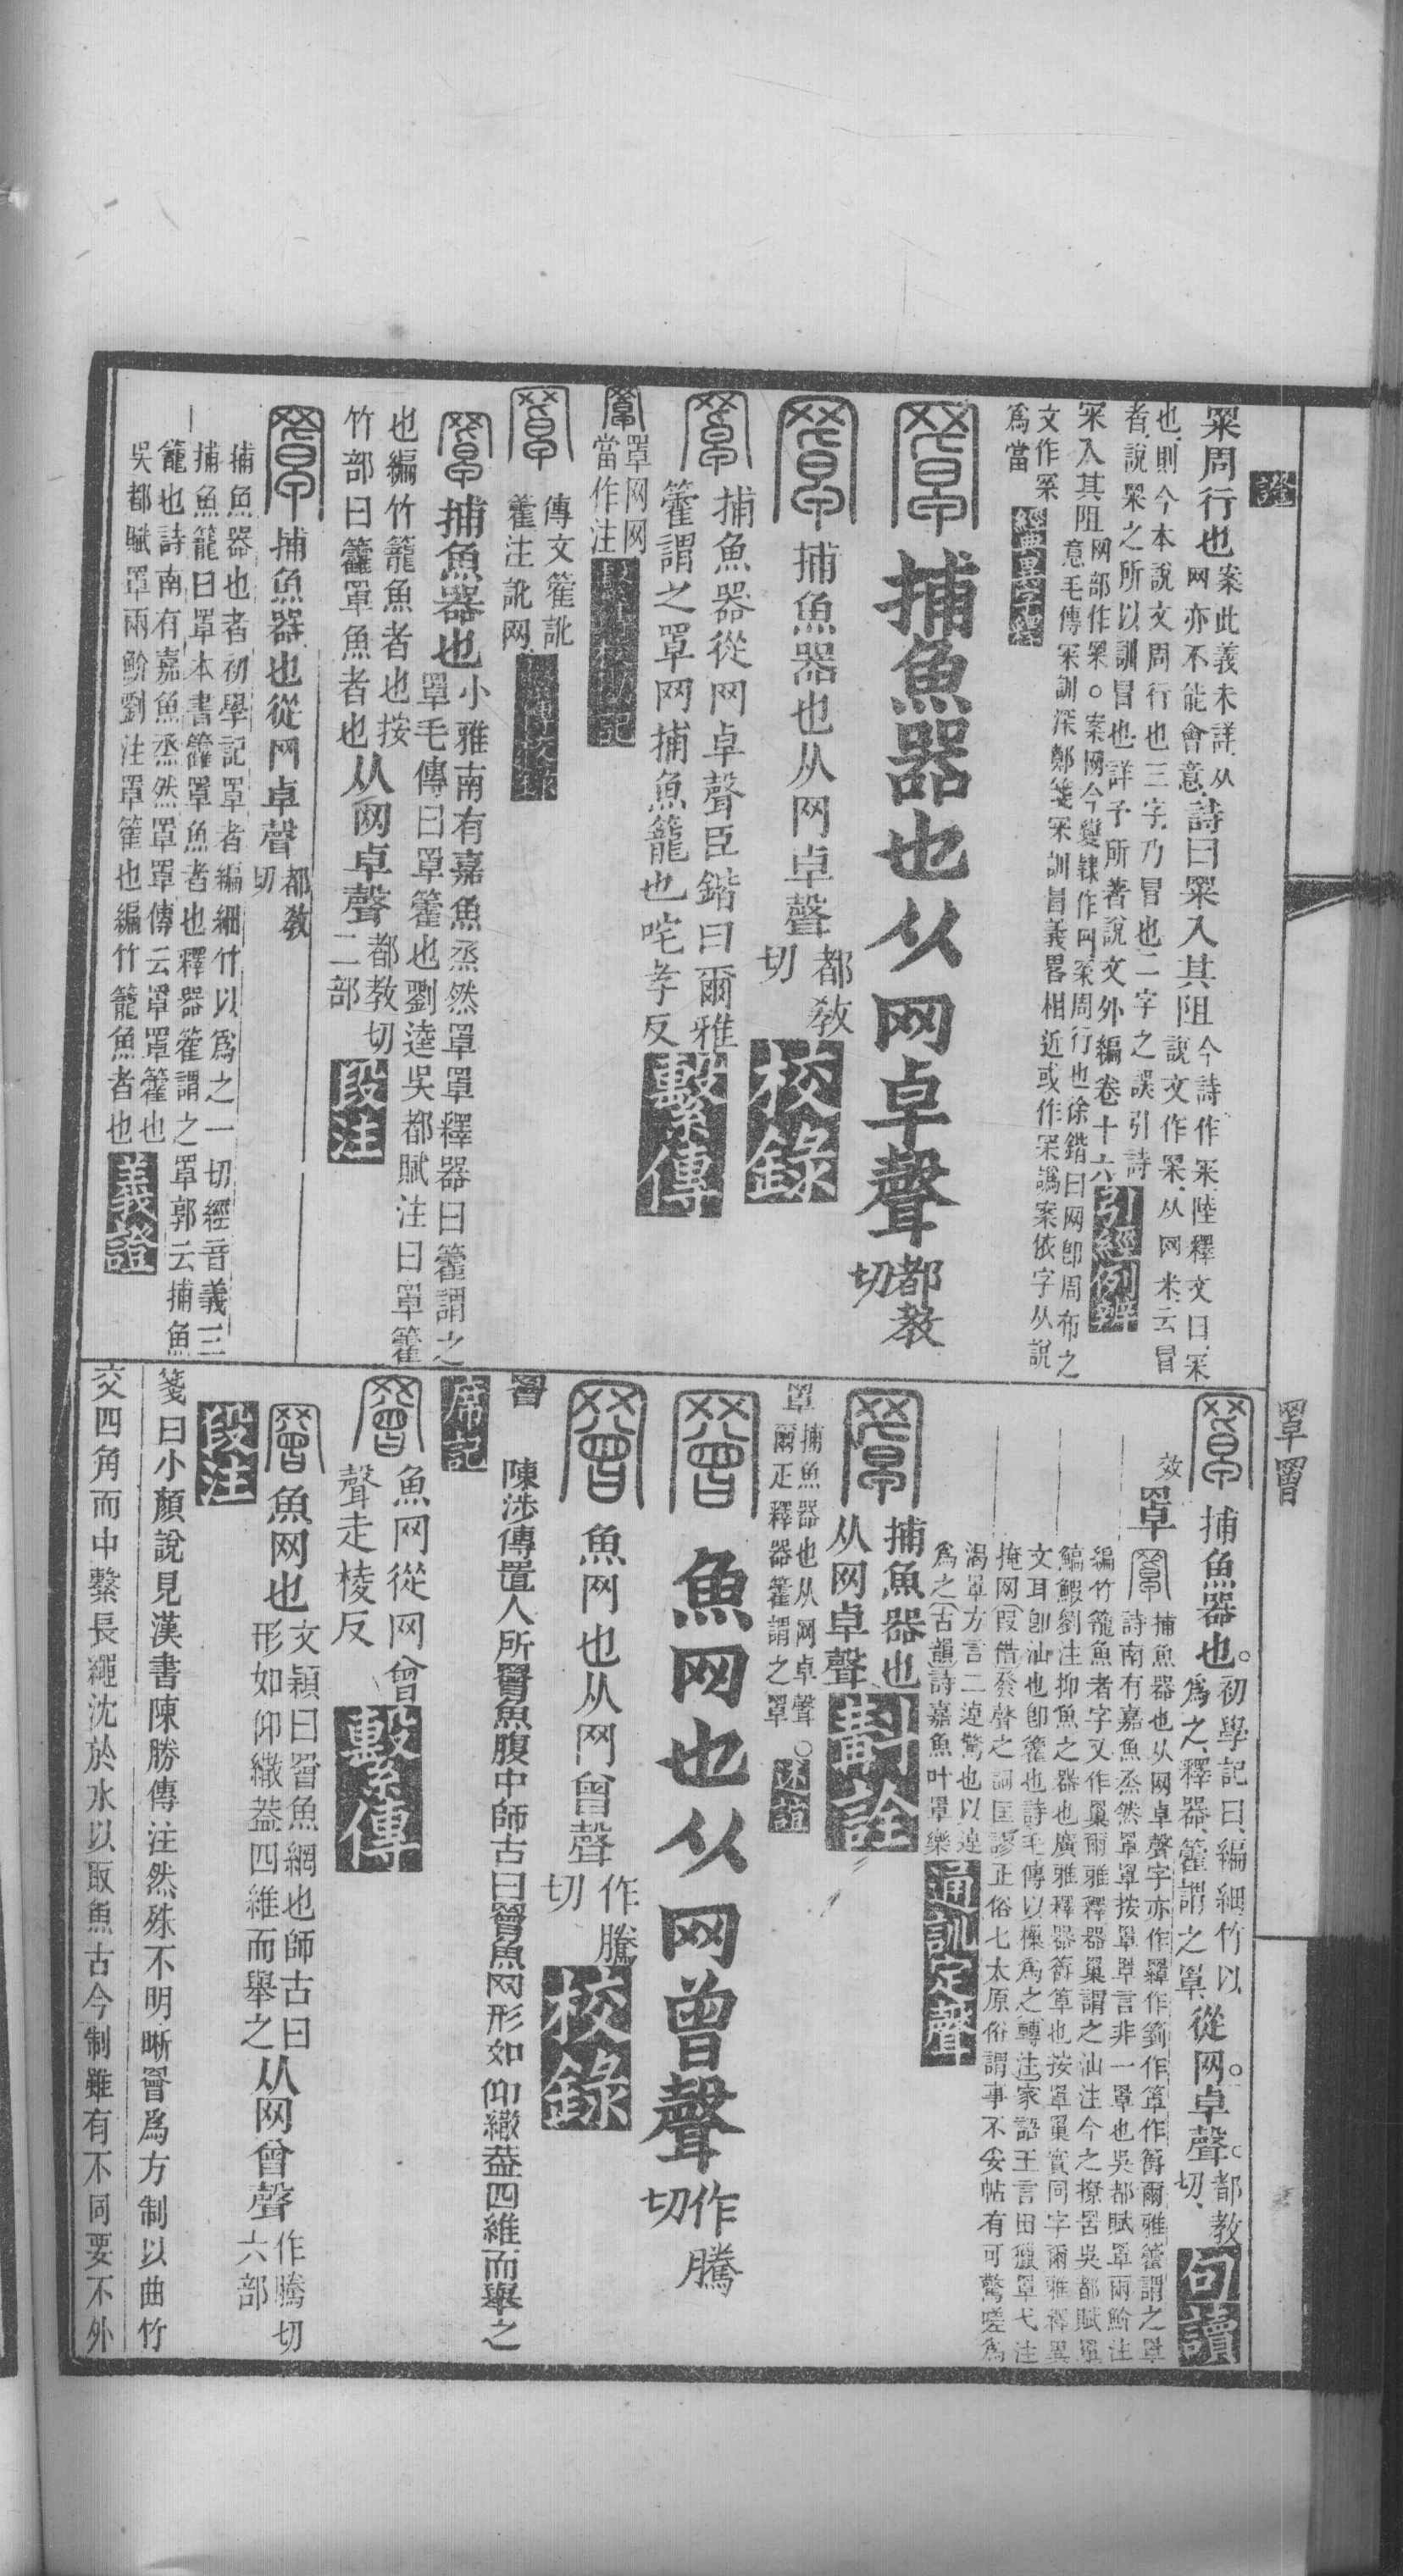 罩罾
證
罙周行也案此義未詳从网亦不能會意詩曰罙入其阻今詩作罙陸釋文曰罙說文作罙从网米云冒
也則今本說文周行也三字乃冒也二字之誤引詩
者說罙之所以訓冒也詳予所著說文外編卷十六引經例辨
罙入其阻网部作罙○案网今變隸作罓案周行也徐鍇曰网卽周布之意毛傳罙訓深鄭箋罙訓冒義畧相近或作罙譌案依字从說
文作罙爲當經典異字釋
捕魚器也从网卓聲都教切
捕魚器也从网卓聲都教切校錄
捕魚器從网卓聲臣鍇曰爾雅
籗謂之罩网捕魚籠也咤孝反繫傳
罩网网當作注
傳文篧訛籗注訛网
捕魚器也小雅南有嘉魚烝然罩罩釋器曰籗謂之罩毛傳曰罩籗也劉逵吳都賦注曰罩籗
也編竹籠魚者也按竹部曰籱罩魚者也从网卓聲都教切二部段注
捕魚器也從网卓聲都教切
捕魚器也者初學記罩者編細竹以爲之一切經音義三
捕魚籠曰罩本書籱罩魚者也釋器篧謂之罩郭云捕魚
籠也詩南有嘉魚烝然罩罩傳云罩罩籗也
吳都賦罩兩魪劉注罩篧也編竹籠魚者也義證
捕魚器也。初學記曰編細竹以爲之釋器籗謂之罩從网卓聲。都教切句讀
效
罩捕魚器也从网卓聲字亦作䍜作箌作箄作䈇爾雅籗謂之罩
詩南有嘉魚烝然罩罩按罩罩言非一罩也吳都賦罩兩魪注
編竹籠魚者字又作罺爾雅釋器罺謂之汕注今之撩罟吳都賦罩
鰝鰕劉注抑魚之器也廣雅釋器䈇箄也按罩罺實同字爾雅釋異
文耳卽汕也卽籗也詩毛傳以樔爲之轉注家語王言田獵罩弋注
掩网假借發聲之詞匡謬正俗七太原俗謂事不妥帖有可驚嗟爲
渴罩方言二逴驚也以逴爲之古韻詩嘉魚叶罩樂通訓定聲
捕魚器也从网卓聲斠詮
罩捕魚器也从网卓聲○爾疋釋器籗謂之罩述誼
魚网也从网曾聲作騰切
魚网也从网曾聲作騰切校錄
罾陳涉傳置人所罾魚腹中師古曰罾魚网形如仰繖葢四維而舉之席記
魚网從网曾聲走棱反繫傳
魚网也文穎曰罾魚網也師古曰形如仰繖葢四維而舉之从网曾聲作騰切六部段注
箋曰小顏說見漢書陳勝傳注然殊不明晰罾爲方制以曲竹
交四角而中繫長繩沈於水以取魚古今制雖有不同要不外